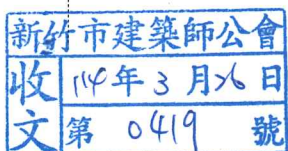 新竹市建築師公會
收文
114年3月26日
第 0419 號